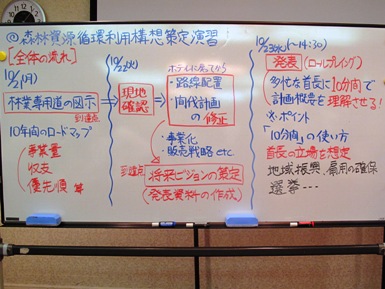 @森林資源循環利用構想策定演習
[全体の流れ]
10/21(月)
林業専用道の図示
到達点
10年間のロードマップ
・事業量
・収支
・優先順 等
10/22(火)
現地
確認
ホテルに戻ってから
・路線配置
・間伐計画
の修正
・事業化
・販売戦略 etc
到達点
将来ビジョンの策定
(発表資料の作成)
10/23(水)(~14:30)
発表(ロールプレイング)
多忙な首長に10分間で
計画概要を理解させる!
※ポイント
「10分間」の使い方
首長の立場を想定
地域振興、雇用の確保
選挙・・・